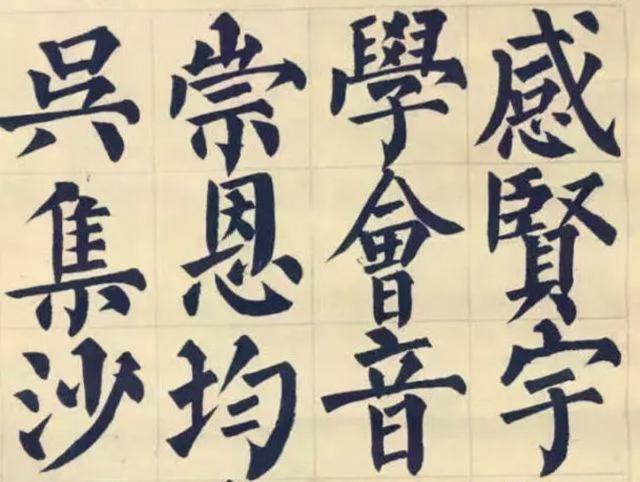 感賢宇
學會音
崇恩均
吳集沙